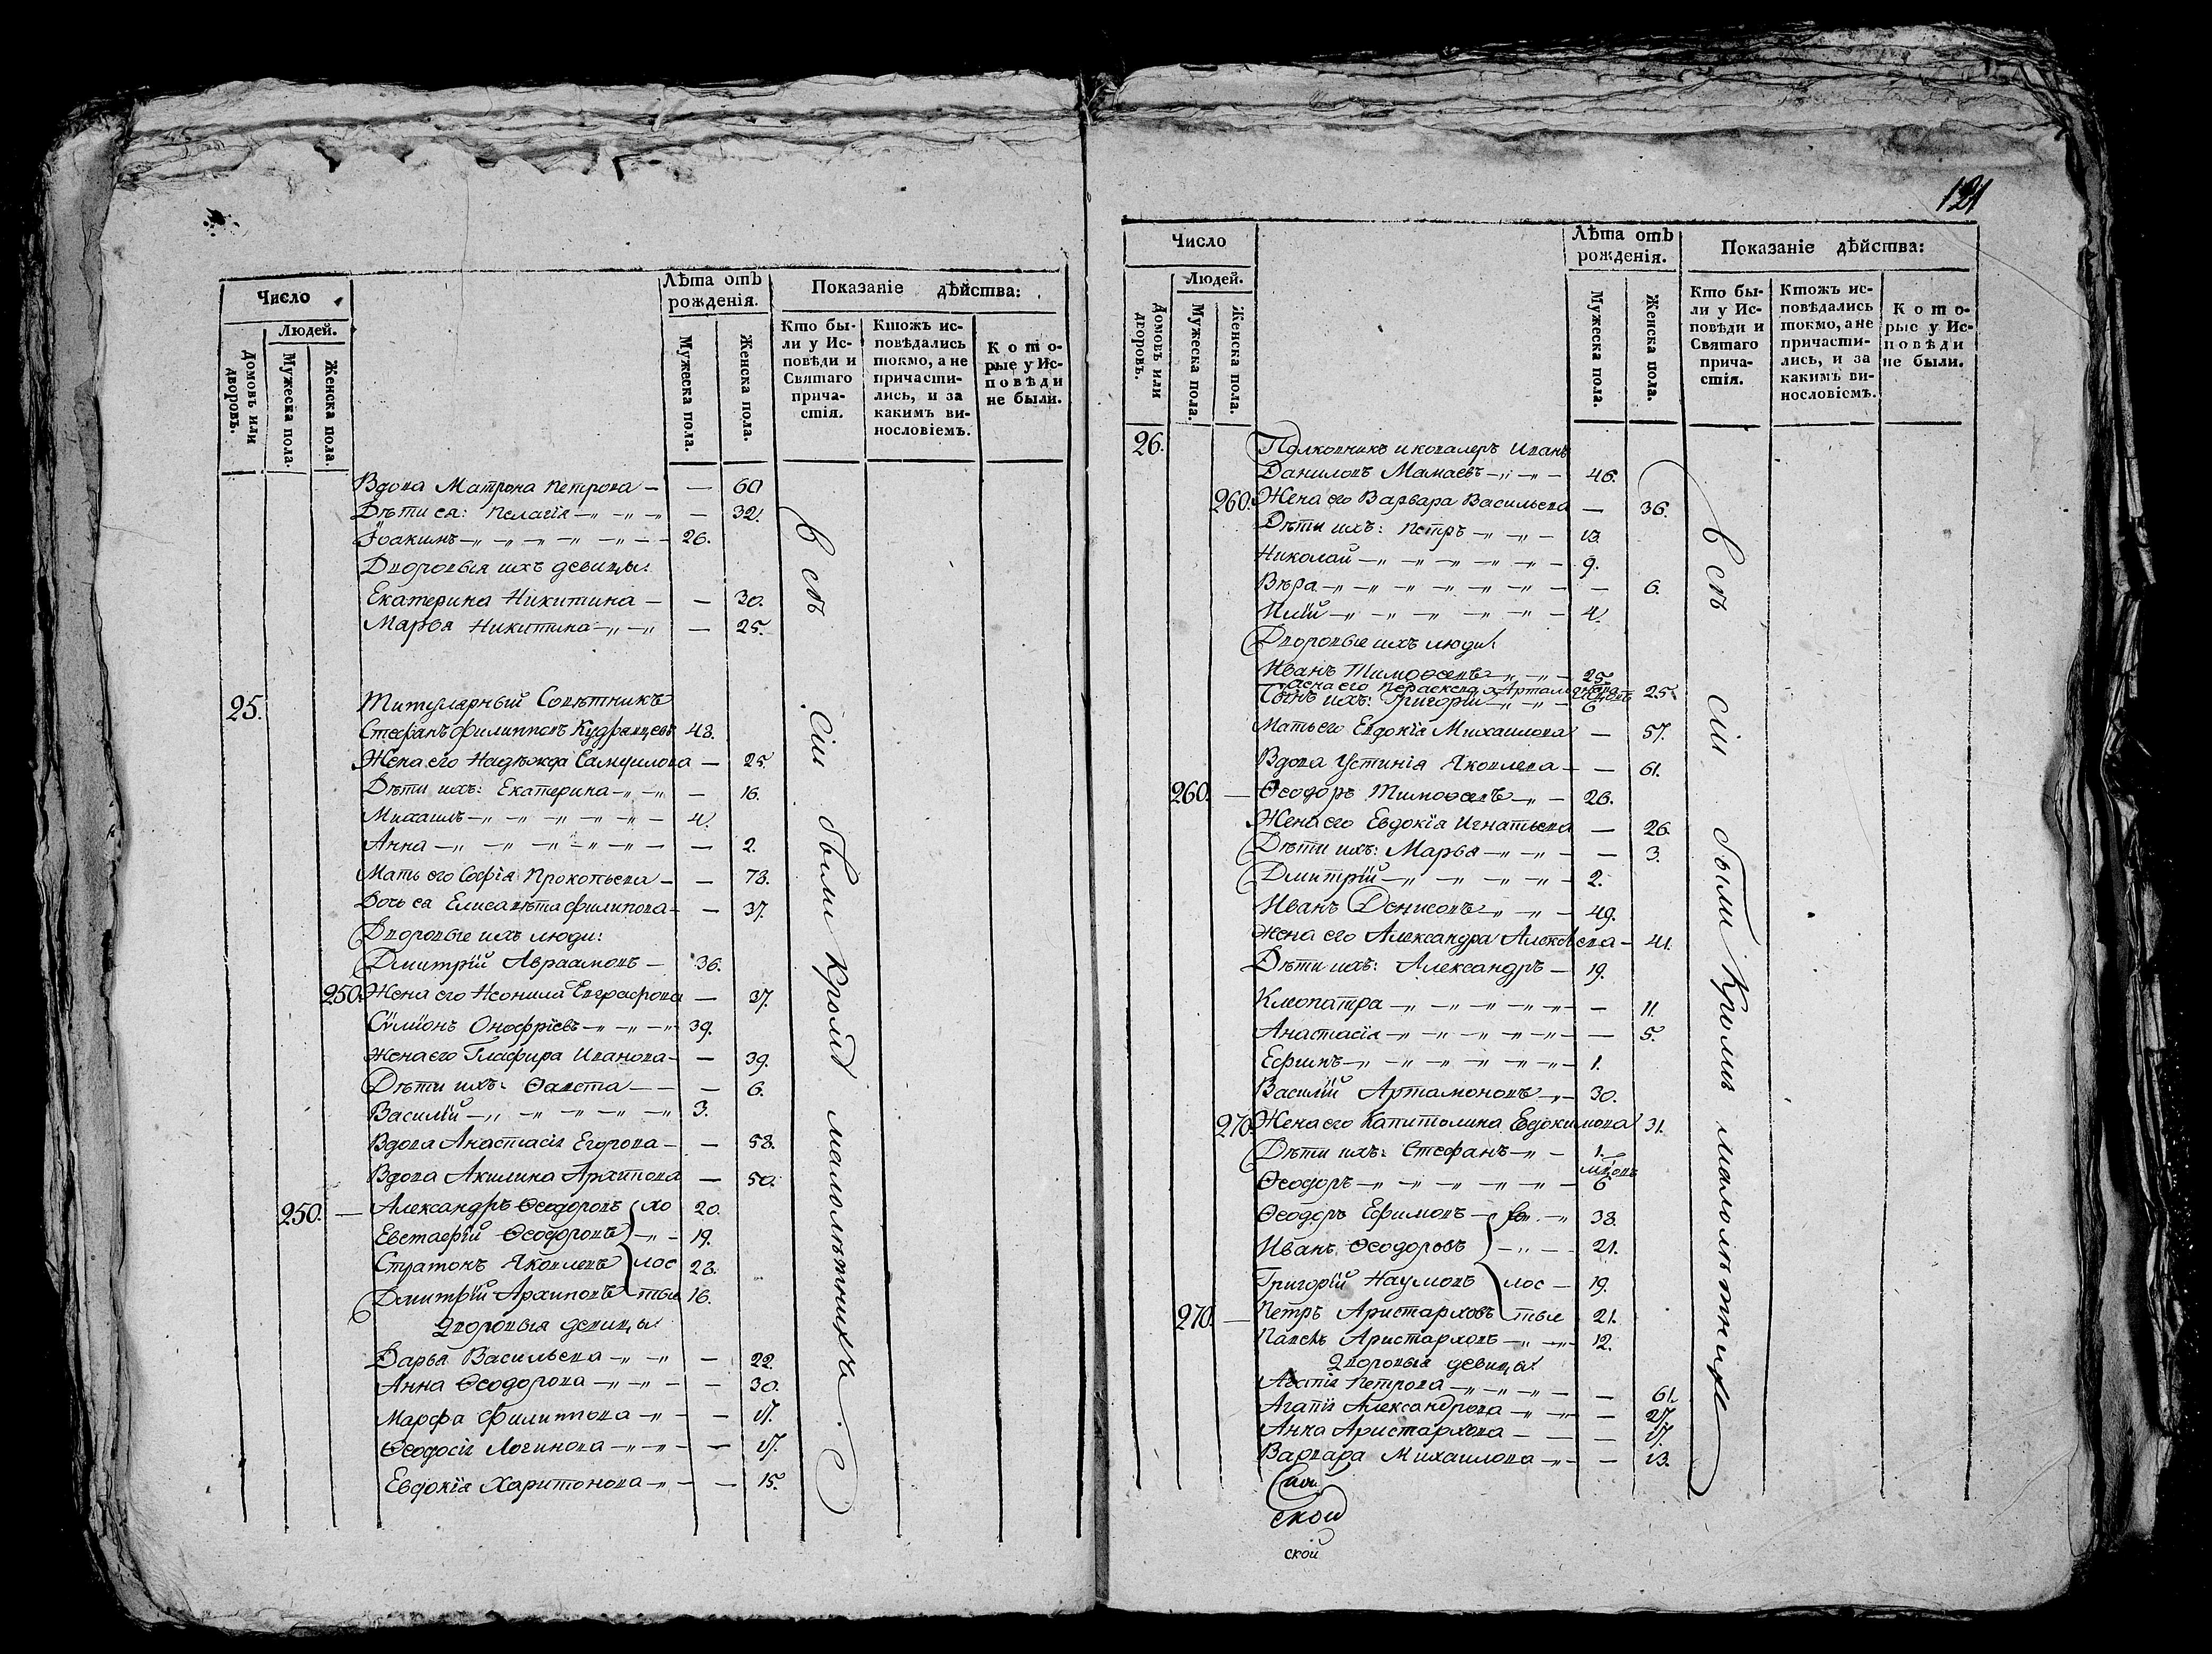 Число
Людей.
Домовъ или дворовъ.
Мужеска пола.
Женска пола.
Лѣта отъ рожденія.
Мужеска пола.
Женска пола.
Показаніе дѣйства:
Кто бы-
ли у Ис-
повѣди и
Святаго
прича-
стія.
Ктожъ ис-
повѣдались
токмо, а не
причасти-
лись, и за
какимъ ви-
нословіемъ.
Кото-
рые у Ис-
повѣди
не были.
Вдова Матрона Петрова — — 60
Дѣти ея: Пелагія — „ — „ — „ — 32.
Іоакимъ — „ — „ — „ — „ — „ — 26.
Дворовыя ихъ девицы:
Екатерина Никитина — — 30.
Марья Никитина — „ — „ — 25.
25. Титулярный Совѣтникъ
Стефанъ Филипповъ Кудрявцевъ 48.
Жена его Надѣжда Самуилова — 25.
Дѣти ихъ: Екатерина — „ — „ — 16.
Михаилъ — „ — „ — „ — „ — „ — 4.
Анна — „ — „ — „ — „ — „ — — 2.
Мать его Софія Прокопьева — — 78.
Дочь ея Елисавѣта Филипова — — 37.
Дворовые ихъ люди:
Дмитрій Авраамовъ — 36.
250. Жена его Неонила Евграфова — 37.
Сѵміонъ Онофріевъ — „ — „ — „ 39.
Жена его Глафира Иванова — — 39.
Дѣти ихъ: Ѳавста — — — 6.
Василій — „ — „ — „ — „ — „ 3.
Вдова Анастасія Егорова — — 58.
Вдова Акилина Архипова — 50.
250. — Александръ Ѳеодоровъ хо 20.
Евстафій Ѳеодоровъ — „ — 19.
Стратонъ Яковлевъ лос 28.
Дмитрій Архиповъ тые 16.
Дворовыя девицы:
Дарья Васильева — „ — „ — 22.
Анна Ѳеодорова — „ — „ — — 30.
Марфа Филиппова — „ — — 17.
Ѳеодосія Логинова — „ — „ — — 17.
Евдокія Харитонова — „ — — 15.
всѣ сіи были кромѣ малолѣтнихъ.
121
Число
Людей.
Домовъ или дворовъ.
Мужеска пола.
Женска пола.
Лѣта отъ рожденія.
Мужеска пола.
Женска пола.
Показаніе дѣйства:
Кто бы-
ли у Ис-
повѣди и
Святаго
прича-
стія.
Ктожъ ис-
повѣдались
токмо, а не
причасти-
лись, и за
какимъ ви-
нословіемъ.
Кото-
рые у Ис-
повѣди
не были.
26. Полковникъ и кавалеръ Иванъ
Даниловъ Мамаевъ — „ — „ — 46.
260. Жена его Варвара Васильева — 36.
Дѣти ихъ: Петръ — „ — „ — 13.
Николай — „ — „ — „ — „ — 9.
Вѣра — „ — „ — „ — „ — „ — „ — — 6.
Илій — „ — „ — „ — „ — „ — 4.
Дворовые ихъ люди:
Иванъ Тимоѳеевъ — „ — „ — 25.
Жена его Параскева Артамонова 25.
Сынъ ихъ: Григорій — „ — „ — 6
Мать его Евдокія Михаилова — 57.
Вдова Устинія Яковлева — — 61.
260. — Ѳеодоръ Тимоѳеевъ — „ — 26.
Жена его Евдокія Игнатьева — 26.
Дѣти ихъ: Марья — „ — „ — — 3.
Дмитрій — „ — „ — „ — „ — 2.
Иванъ Денисовъ — „ — „ — 49.
Жена его Александра Алексѣева — 41.
Дѣти ихъ: Александръ — 19.
Клеопатра — „ — „ — „ — „ — „ — — 11.
Анастасія — „ — „ — „ — „ — „ — — 5.
Ефимъ — „ — „ — „ — „ — „ — 1.
Василій Артамоновъ — „ — 30.
270. Жена его Капитолина Евдокимова 31.
Дѣти ихъ: Стефанъ — „ — 1.
Ѳеодоръ — „ — „ — „ — „ — „ — 6
Ѳеодоръ Ефимовъ — „ — „ 38.
Иванъ Ѳеодоровъ — „ — 21.
Григорій Наумовъ лос — 19.
270. — Петръ Аристарховъ тые 21.
Павелъ Аристарховъ — „ — „ — 12.
Дворовыя девицы:
Агапія Петрова — „ — „ — „ — — 61.
Агапія Александрова — „ — „ — 27.
Анна Аристархова — — — 17.
Варвара Михаилова — „ — — 13.
всѣ сіи были кромѣ малолѣтнихъ
ской
ской